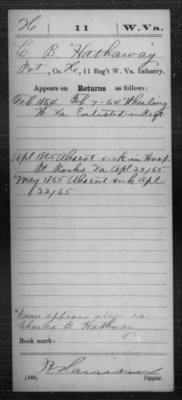 H 11 W. Va.
C. B. Hathaway
Pvt, Co. H, 11 Reg't W. Va. Infantry.
Appears on Returns as follows:
Feb 1864 Feb 7-64 Wheeling
W Va Enlisted in Regt
Apl 1865 Absent sick in Hosp.
Pt Rocks Va Apl 22/65
May 1865 Absent sick Apl
22/65
Name appears also as
Charles B. Hathaway
Book mark:
(546) Copyist.